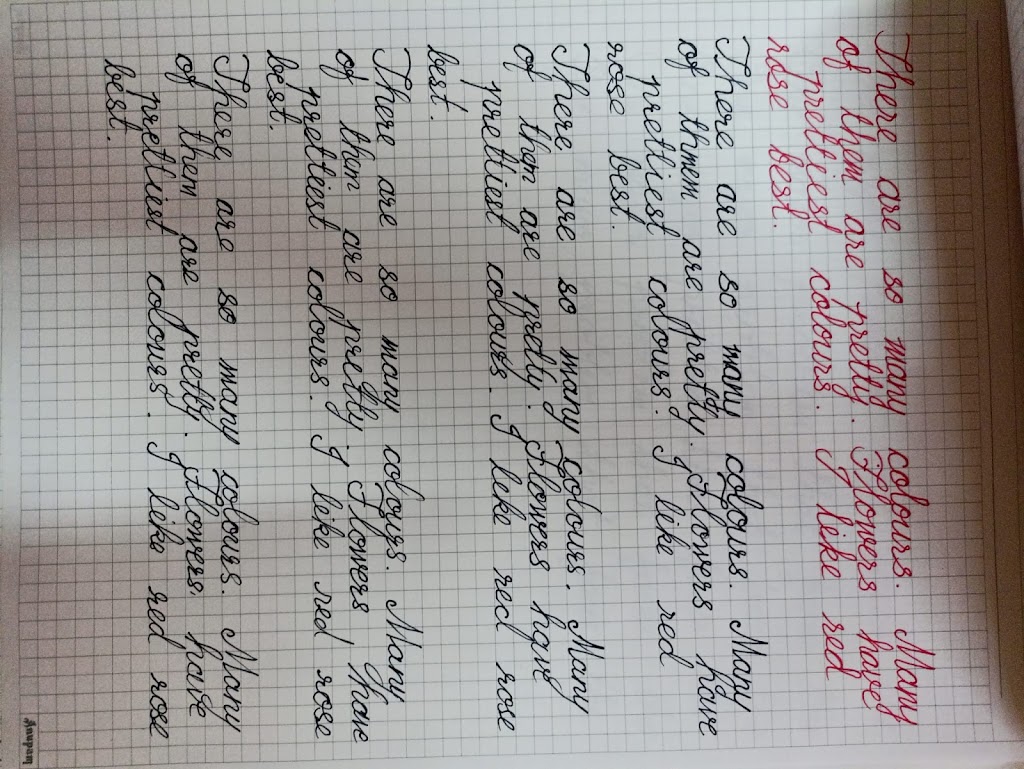 There are so many colours. Many
of them are pretty. Flowers have
prettiest colours. I like red
rose best.
There are so many colours. Many
of thmem are pretty. Flowers have
prettiest colours. I like red
rose best.
There are so many colours. Many
of them are pretty. Flowers have
prettiest colours. I like red rose
best.
There are so many colours. Many
of them are pretty. Flowers have
prettiest colours. I like red rose
best.
There are so many colours. Many
of them are pretty. Flowers have
prettiest colours. I like red rose
best.
Anupam